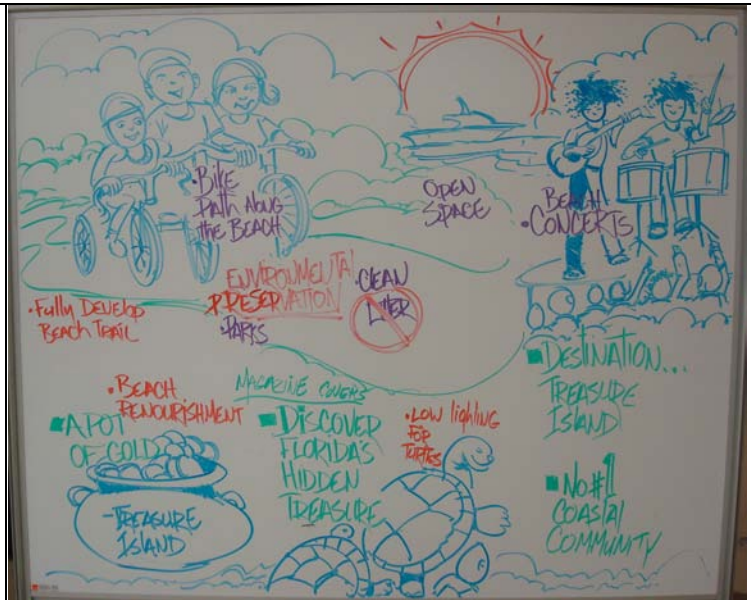 • Bike
Path Along
the Beach
Open
Space
Beach
• Concerts
Environmental
Preservation
• Parks
• Clean
Litter
• Fully Develop
Beach Trail
• Beach
Renourishment
Magazine Covers
A Pot
of Gold
- Treasure
Island
Discover
Florida's
Hidden
Treasure
• Low lighting
for
turtles
Destination...
Treasure
Island
No #1
Coastal
Community